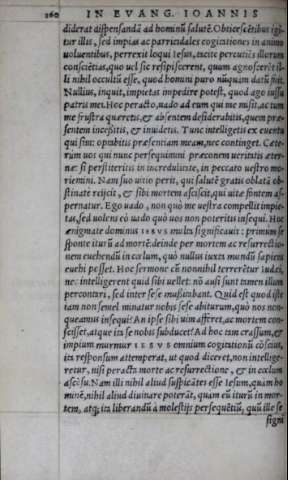 260 IN EVANG. IOANNIS
diderat dispensandã ad hominũ salutẽ. Obticescẽtibus igi-
tur illis, sed impias ac parricidales cogitationes in animo
voluentibus, perrexit loqui Iesus, tacite percutiẽs illorum
conscietias, quo uel sic resipiscerent, quum agnoscerẽt il-
li nihil occultũ esse, quod homini puro nũquam datũ fuit.
Nullius, inquit, impietas impedire potest, quo ago iussa
patris mei. Hoc peracto, uado ad eum qui me misit, ac tum
me frustra queretis, & absentem desiderabitis, quem præ-
sentem incessitis, & inuidetis. Tunc intelligetis ex euentu
qui sim: opinibus præsentiam meam, nec continget. Cæte-
rum uos qui nunc persequimini præconem ueritatis æter-
næ: si persteritis in incredulitate, in peccato uestro mo-
riemini. Nam suo uitio perit, qui salutẽ gratis oblatã ob-
stinate reijcit, & sibi mortem asciscit, qui uitæ fontem as-
pernatur. Ego uado, non quò me uestra compellit impie-
tas, sed uolens eò uado quò uos non poteritis insequi. Hoc
ænigmate dominus IESVS multa significauit: primum se
sponte iturũ ad mortẽ: deinde per mortem ac resurrectio-
nem euehendũ in cœlum, quò nullus iuxta mundũ sapiens
euehi posset. Hoc sermone cũ nonnihil terrerẽtur Iudæi,
nec intelligerent quid sibi uellet: nõ ausi sunt tamen illum
percontari, sed inter sese mussitabant. Quid est quod iste
tam non semel minatur nobis sese abiturum, quò nos non
queamus insequi? An ipse sibi uim afferet, ac mortem con-
sciscet, atque ita se nobis subducet? Ad hoc tam crassum, et
impium murmur IESVS omnium cogitationũ cõscius,
ita responsum attemperat, ut quod diceret, non intellige-
retur, nisi peracta morte ac resurrectione, & in cœlum
ascẽsu. Nam illi nihil aliud suspicãtes esse Iesum, quàm ho
minẽ, nihil aliud diuinare poterãt, quàm eum iturũ in mor-
tem, atq; ita liberandũ à molestijs persequẽtiũ, quũ ille se
signi